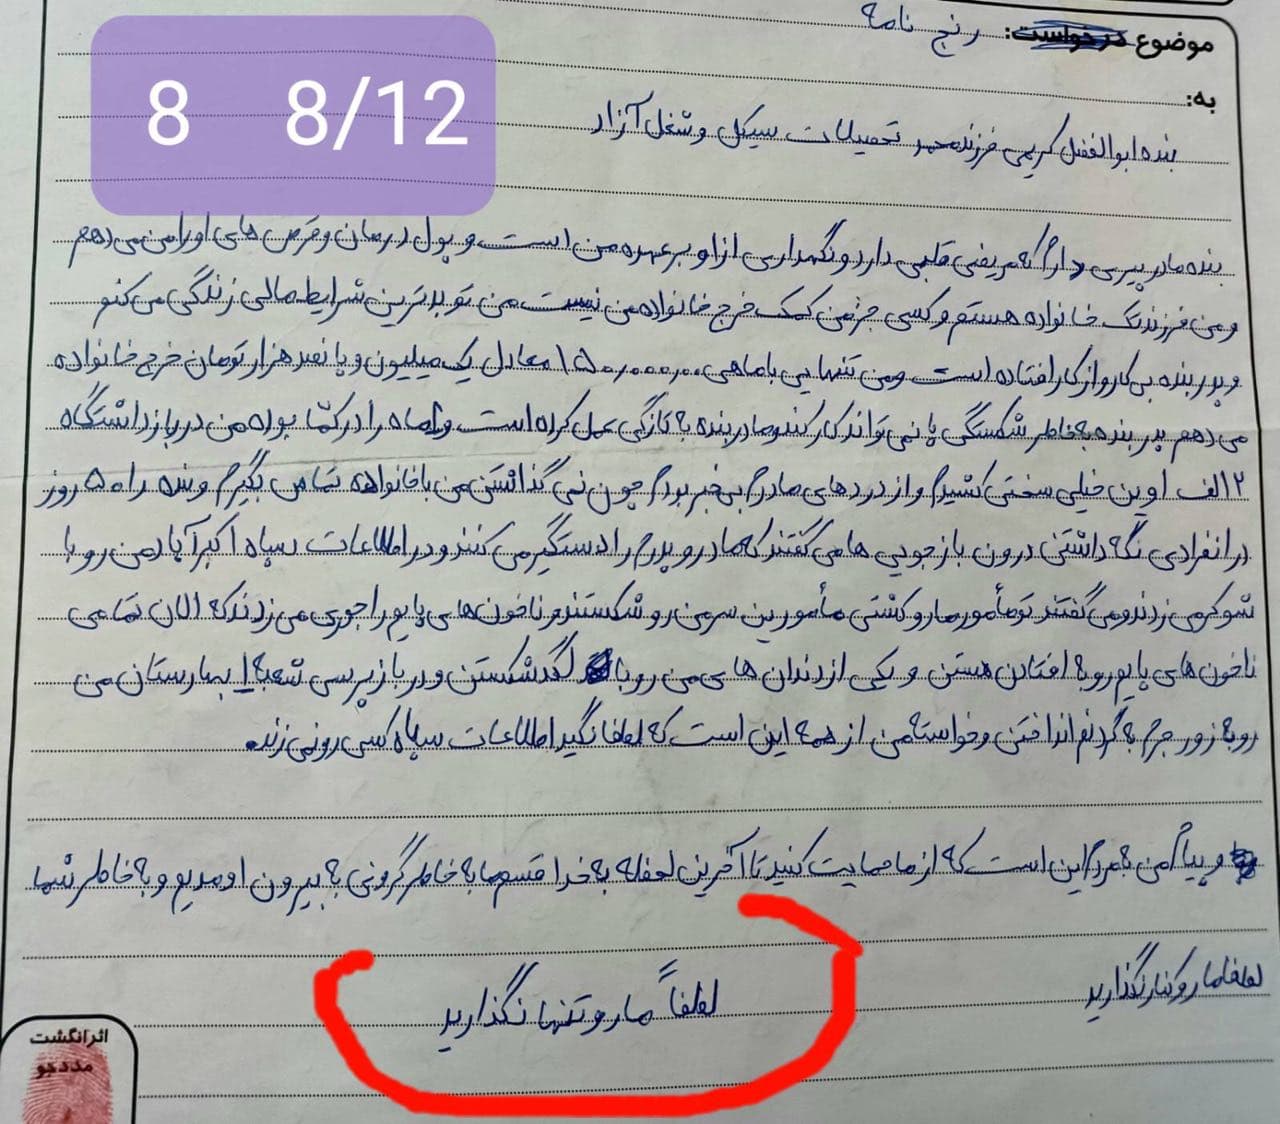 8 8/12
موضوع درخواست: رنج نامه
به:
بنده ابوالفضل کریمی فرزند محمد تحصیلات سیکل و شغل آزاد
بنده مادر پیری دارم که مریضی قلبی دارد و نگهداری از او بر عهده من است و پول درمان و قرص های او را من می دهم
و من فرزند تک خانواده هستم و کسی جز من کمک خرج خانواده من نیست من تو بدترین شرایط مالی زندگی می کنم
و پدر بنده بی کار و از کار افتاده است و من تنهایی با ماهی ۱۵۰۰۰۰۰۰ معادل یک میلیون و پانصد هزار تومان خرج خانواده
می دهم پدر بنده به خاطر شکستگی پا نمی تواند کار کند و مادر بنده به تازگی عمل کرده است و ماه را در کما بوده من در بازداشتگاه
۲ الف اوین خیلی سختی کشیدم و از دردهای مادرم بی خبر بودم چون نمی گذاشتن من با خانواده تماس بگیرم و بنده را ۵۰ روز
در انفرادی نگه داشتن درون بازجویی ها می گفتند که مادر و پدرم را دستگیر می کنند و در اطلاعات سپاه اکبرآباد من رو با
شوکر می زدند و می گفتند تو مأمور ما رو کشتی مأمورین سر من رو شکستند و ناخون های پایم را جوری می زدند که الان تمامی
ناخون های پایم رو به افتادن هستن و یکی از دندان های من رو با لگد شکستن و در بازپرسی شعبه ۱ بهارستان من
رو به زور جرم به گردنم انداختن و خواسته من از همه این است که لطفا نگید اطلاعات سپاه کسی رو نمی زند.
و پیام من به مردم این است که از ما حمایت کنید تا آخرین لحظه به خدا قسم ما به خاطر گرونی به بیرون اومدیم و به خاطر شما
لطفا ما رو کنار نگذارید
لطفاً ما رو تنها نگذارید
اثر انگشت
مددجو